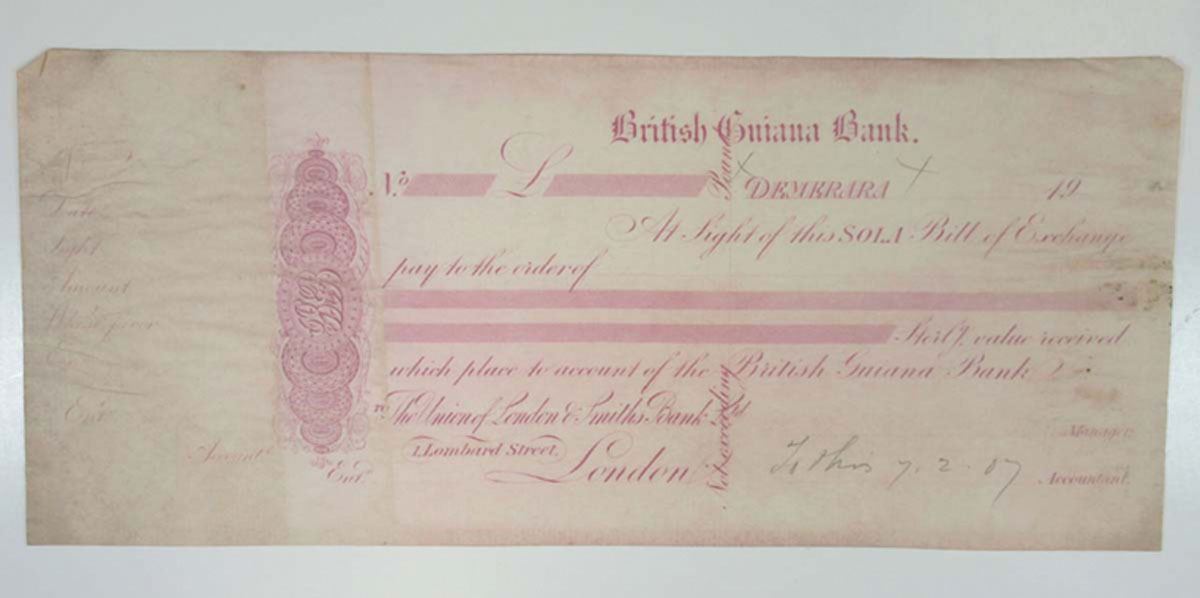 British Guiana Bank.
No. £
DEMERARA 19
At Sight of this SOLA Bill of Exchange
pay to the order of
Sterlg. value received
which place to account of the British Guiana Bank
To The Union of London & Smiths Bank Ld
1, Lombard Street,
London
Manager.
Accountant.
Entd.
Not exceeding
Pounds
7.2.07
Date
Sight
Amount
Whose favor
Entd.
Accountt.